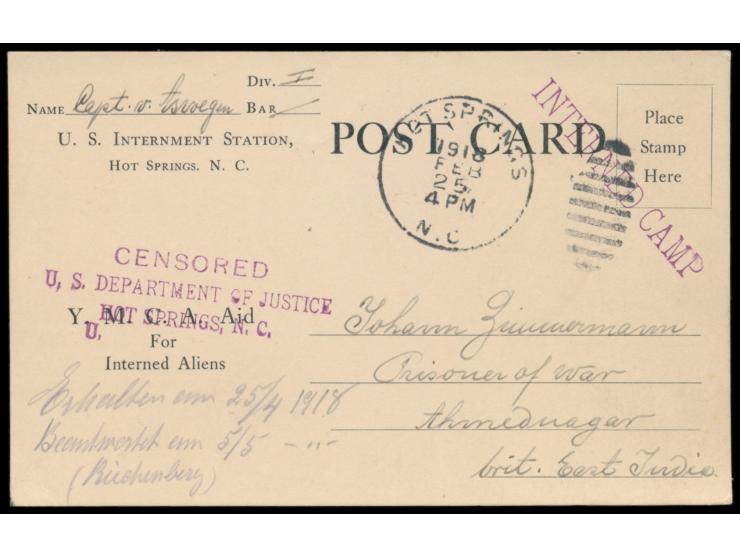 Div. I
NAME Capt. v. Asswegen BAR
U. S. INTERNMENT STATION,
HOT SPRINGS. N. C.
POST CARD
HOT SPRINGS
1918
FEB
25
4 PM
N.C.
INTERNED CAMP
Place
Stamp
Here
CENSORED
U. S. DEPARTMENT OF JUSTICE
HOT SPRINGS, N. C.
U.
Y. M. C. A. Aid
For
Interned Aliens
Johann Zimmermann
Prisoner of war
Ahmednagar
brit. East India.
Erhalten am 25/4 1918
Beantwortet am 5/5 -"-